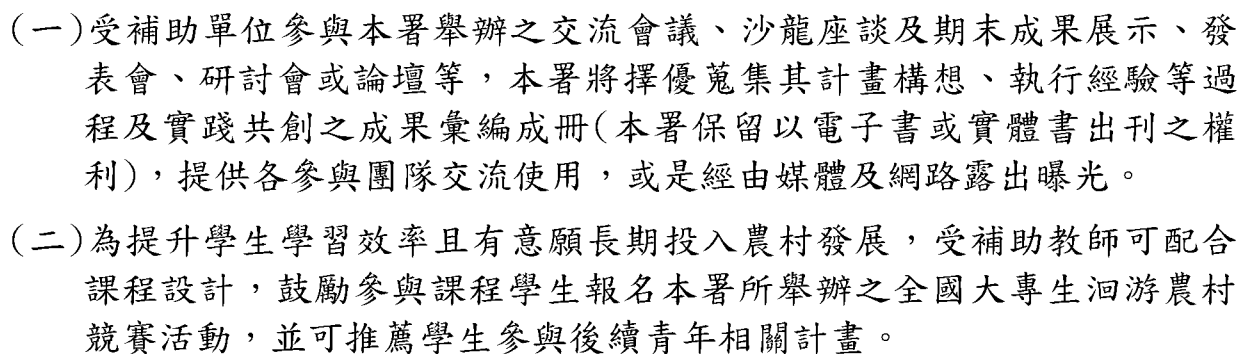 (一)受補助單位參與本署舉辦之交流會議、沙龍座談及期末成果展示、發
表會、研討會或論壇等，本署將擇優蒐集其計畫構想、執行經驗等過
程及實踐共創之成果彙編成冊(本署保留以電子書或實體書出刊之權
利)，提供各參與團隊交流使用，或是經由媒體及網路露出曝光。
(二)為提升學生學習效率且有意願長期投入農村發展，受補助教師可配合
課程設計，鼓勵參與課程學生報名本署所舉辦之全國大專生洄游農村
競賽活動，並可推薦學生參與後續青年相關計畫。